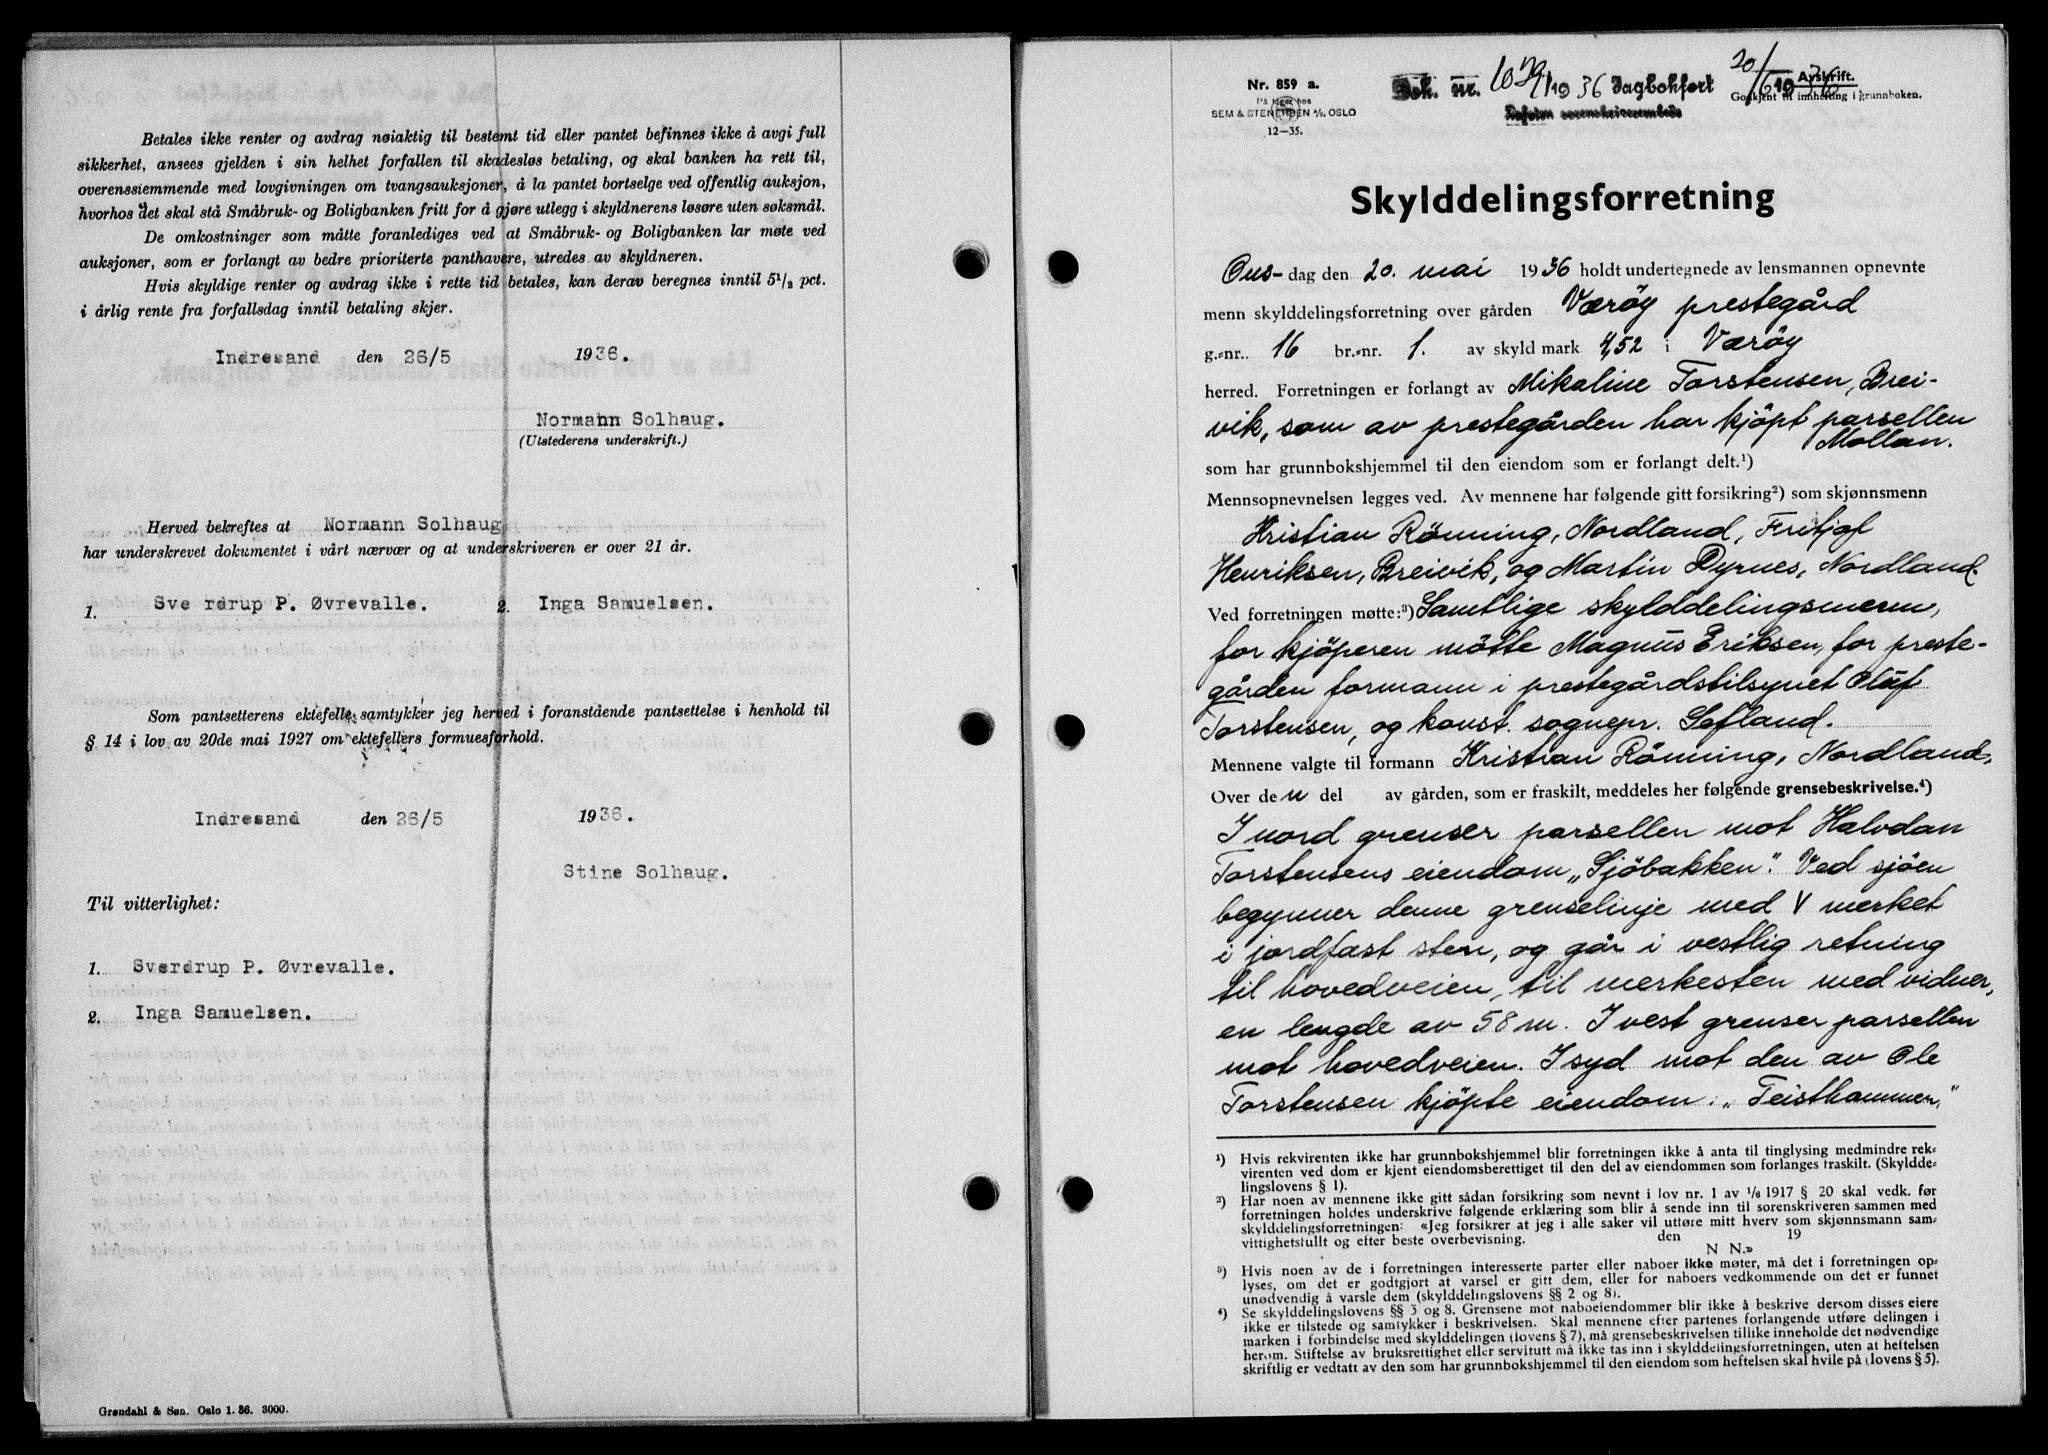 Betales ikke renter og avdrag nøiaktig til bestemt tid eller pantet befinnes ikke å avgi full
sikkerhet, ansees gjelden i sin helhet forfallen til skadesløs betaling, og skal banken ha rett til,
overensstemmende med lovgivningen om tvangsauksjoner, å la pantet bortselge ved offentlig auksjon,
hvorhos det skal stå Småbruk- og Boligbanken fritt for å gjøre utlegg i skyldnerens løsøre uten søksmål.
De omkostninger som måtte foranlediges ved at Småbruk- og Boligbanken lar møte ved
auksjoner, som er forlangt av bedre prioriterte panthavere, utredes av skyldneren.
Hvis skyldige renter og avdrag ikke i rette tid betales, kan derav beregnes inntil 5 1/2 pct.
i årlig rente fra forfallsdag inntil betaling skjer.
Indresand den 26/5 1936.
Normann Solhaug.
(Utstederens underskrift.)
Herved bekreftes at Normann Solhaug
har underskrevet dokumentet i vårt nærvær og at underskriveren er over 21 år.
1. Sve rdrup P. Øvrevalle. 2. Inga Samuelsen.
Som pantsetterens ektefelle samtykker jeg herved i foranstående pantsettelse i henhold til
§ 14 i lov av 20de mai 1927 om ektefellers formuesforhold.
Indresand den 26/5 1936.
Stine Solhaug.
Til vitterlighet:
1. Sverdrup P. Øvrevalle.
2. Inga Samuelsen.
Grøndahl & Søn, Oslo 1. 36. 3000.
Nr. 859 a.
På lager hos
SEM & STENERSEN A/S. OSLO
12—35.
Dok. nr. 1039/1936 Dagbokført 20/6 1936
Avskrift.
Godkjent til innhefting i grunnboken.
Lofoten sorenskriverembede
Skylddelingsforretning
Ons-dag den 20. mai 1936 holdt undertegnede av lensmannen opnevnte
menn skylddelingsforretning over gården Værøy prestegård
g.-nr. 16 br.-nr. 1. av skyld mark 4,52 i Værøy
herred. Forretningen er forlangt av Mikaline Torstensen, Brei-
vik, som av prestegården har kjöpt parsellen
Mollan.
som har grunnbokshjemmel til den eiendom som er forlangt delt.¹)
Mennsopnevnelsen legges ved. Av mennene har følgende gitt forsikring²) som skjønnsmenn
Kristian Rönning, Nordland, Fritjof
Henriksen, Breivik, og Martin Dyrnes, Nordland.
Ved forretningen møtte:³) Samtlige skylddelingsmenn,
for kjöperen mötte Magnus Eriksen, for preste-
gården formann i prestegårdstilsynet Oluf
Torstensen, og konst. sognepr. Sefland.
Mennene valgte til formann Kristian Rönning, Nordland.
Over den del av gården, som er fraskilt, meddeles her følgende grensebeskrivelse.⁴)
I nord grenser parsellen mot Halvdan
Torstensens eiendom „Sjöbakken". Ved sjöen
begynner denne grenselinje med V merket
i jordfast sten, og går i vestlig retning
til hovedveien, til merkesten med vidner,
en lengde av 58 m. I vest grenser parsellen
mot hovedveien. I syd mot den av Ole
Torstensen kjöpte eiendom: „Teisthammer,"
¹) Hvis rekvirenten ikke har grunnbokshjemmel blir forretningen ikke å anta til tinglysing medmindre rek-
virenten ved dom er kjent eiendomsberettiget til den del av eiendommen som forlanges fraskilt. (Skyldde-
lingslovens § 1).
²) Har noen av mennene ikke gitt sådan forsikring som nevnt i lov nr. 1 av 1/6 1917 § 20 skal vedk. før
forretningen holdes underskrive følgende erklæring som blir å sende inn til sorenskriveren sammen med
skylddelingsforretningen: «Jeg forsikrer at jeg i alle saker vil utføre mitt hverv som skjønnsmann sam-
vittighetsfullt og efter beste overbevisning. den 19
N N.»
³) Hvis noen av de i forretningen interesserte parter eller naboer ikke møter, må det i forretningen op-
lyses, om det er godtgjort at varsel er gitt dem, eller for naboers vedkommende om det er funnet
unødvendig å varsle dem (skylddelingslovens §§ 2 og 8).
⁴) Se skylddelingslovens §§ 3 og 8. Grensene mot naboeiendommer blir ikke å beskrive dersom disses eiere
ikke er tilstede og samtykker i beskrivelsen. Skal mennene efter partenes forlangende utføre delingen i
marken i forbindelse med skylddelingen (lovens § 7), må grensebeskrivelsen tillike inneholde det nødvendige
herom. Stiftelse av bruksrettighet eller servitutt må ikke tas inn i skylddelingsforretningen, uten at heftelsen
skriftlig er vedtatt av den som har grunnbokshjemmel til den eiendom som heftelsen skal hvile på (lovens § 5).